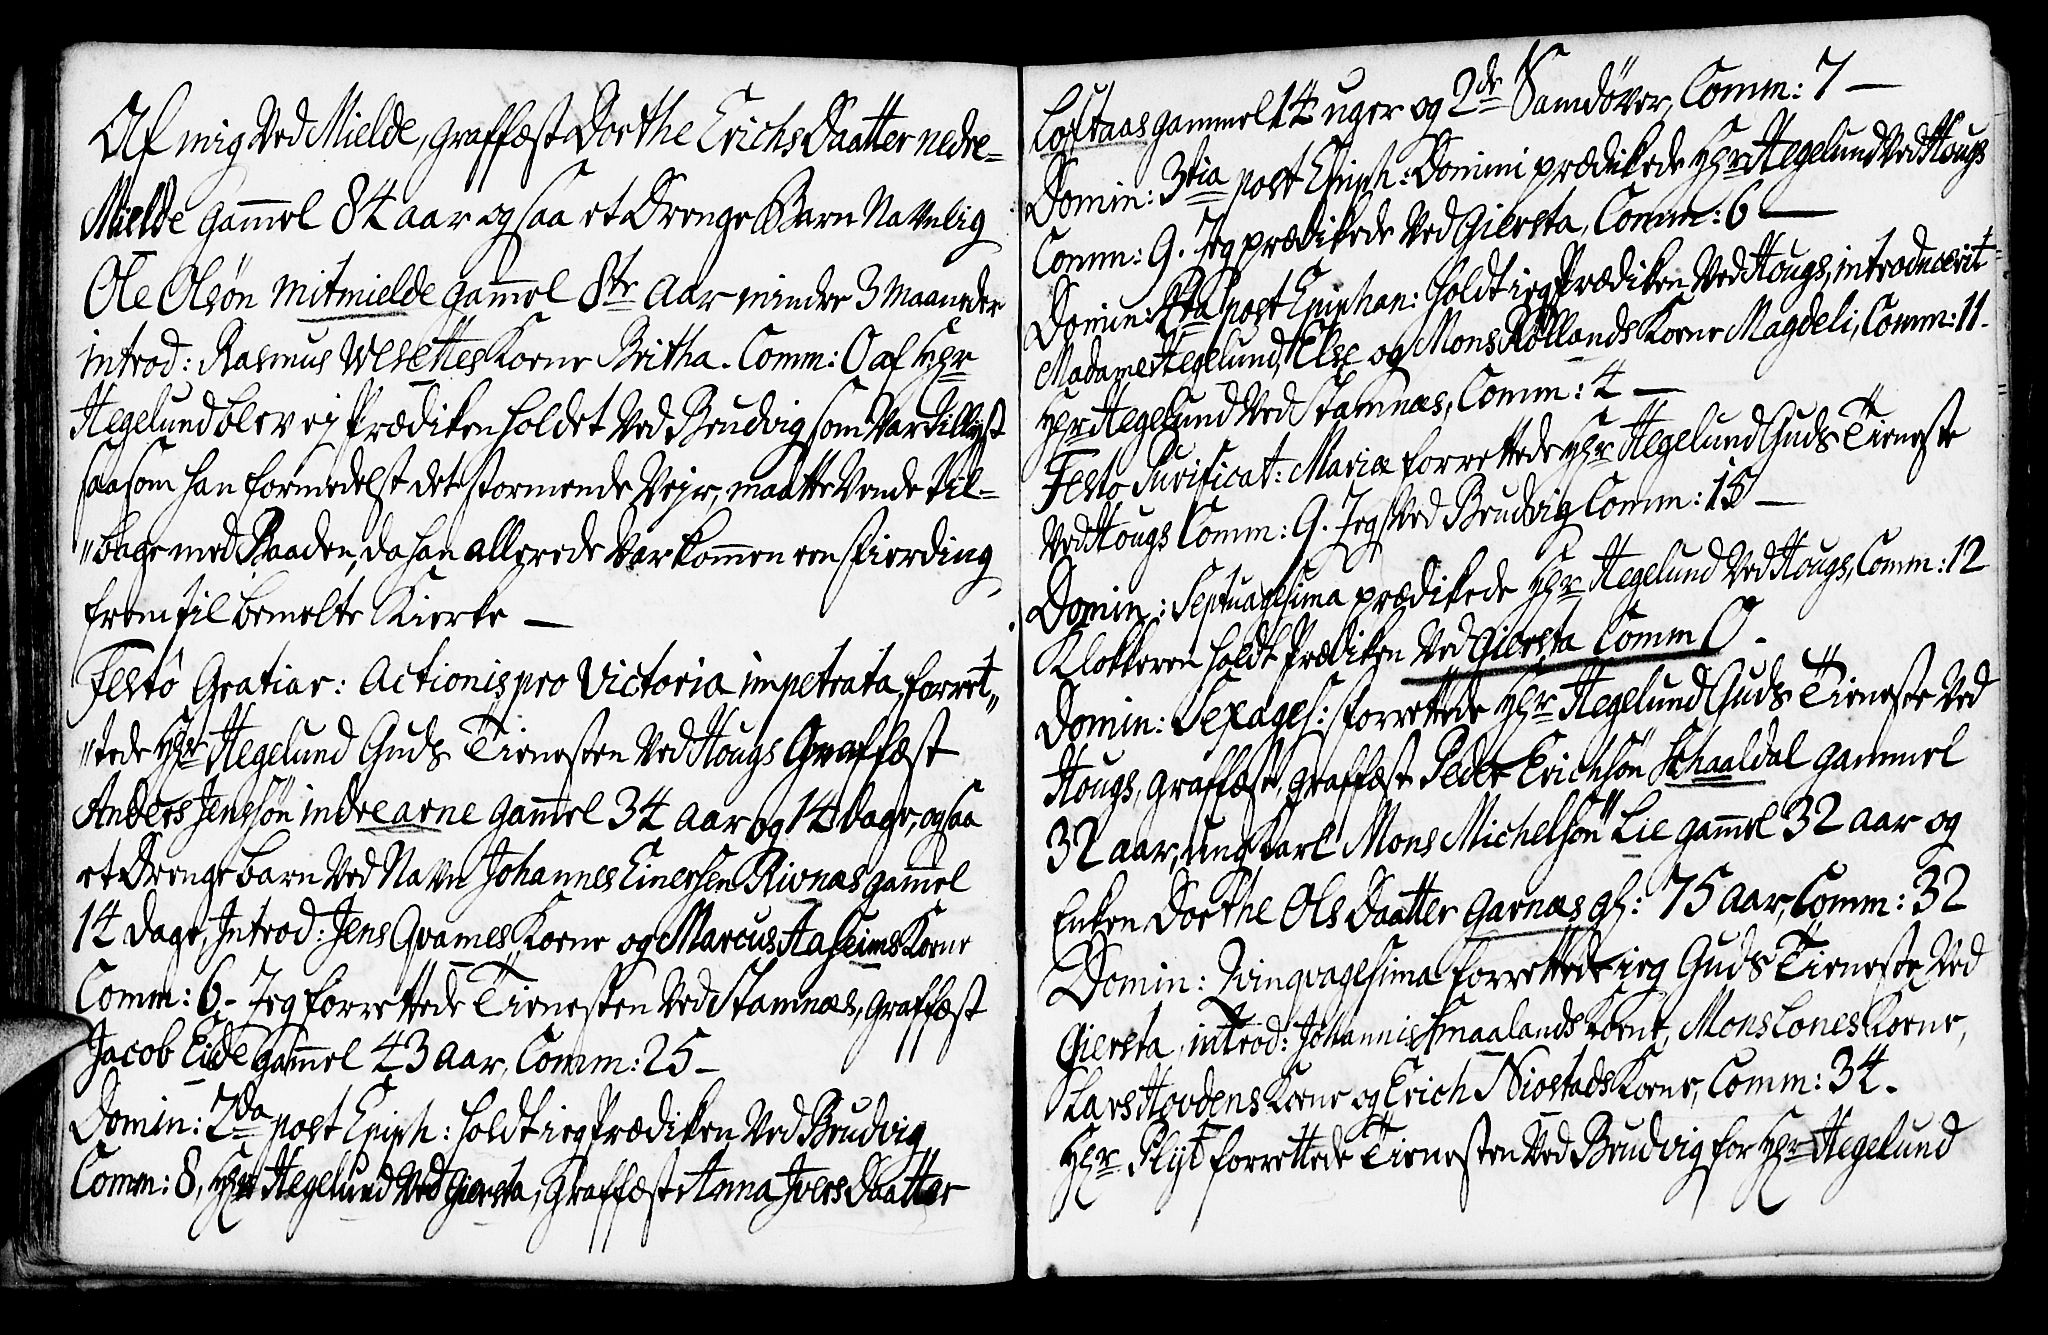 Af mig Ved Mielde, graffæst Dorthe Erichs Daatter nedre=
Mielde gam̄el 84 aar og saa et Drenge Barn Navnlig
Ole Olsön mitmielde gam̄el 8te aar mindre 3 maaneder
introd: Rasmus Wesettes Kone Britha. Comm: 0 af Hr
Hegelund blev ej Prædiken holdet Ved Brudvig som Var tillyst
saasom han formedelst det stormende Vejr, maatte Vende til=
"bage med Baaden, da han allerede Var kom̄en een fierding
frem til bemelte Kierke —
Festô Gratiar: Actionis pro Victoria impetrata, forret"
"tede Hr Hegelund Guds Tienesten Ved Hougs Graffæst
Anders Jensön indre arne gam̄el 34 aar og 14 dage, og saa
et Drenge barn Ved Navn Johannes Einersen Rivnæs gam̄el
14 dage, Introd: Jens Qvames Kone og Marcus Aaseims Kone
Comm: 6. Jeg forrettede Tienesten Ved Stamnæs, graffæst
Jacob Eide gam̄el 43 aar, Comm: 25 —
Domin: 2da post Epiph: holdt ieg Prædiken Ved Brudvig
Comm: 8, Hr Hegelund Ved Giersta, Graffæst Anna Ivers Daatter
Loftaas gammel 14 uger og 2de Samdöver, Comm: 7 —
Domin: 3tia post Epiph: Domini prædikede Hr Hegelund Ved Hougs
Comm: 9. Jeg prædikede Ved Giersta, Comm: 6 —
Domin: 4ta post Epiphan: holdt ieg Prædiken Ved Hougs, introducerit=
Madame Hegelund, Else og Mons Röllands Kone Magdeli, Comm: 11.
Hr Hegelund Ved Stamnæs, Comm: 4 —
Festo Purificat: Mariæ forrettede Hr Hegelund Guds Tieneste
Ved Hougs Comm: 9. Jeg Ved Brudvig Comm: 15 —
Domin: Septuagesima prædikede Hr Hegelund Ved Hougs, Comm: 12
Klokkeren holdt Prædiken Ved Giersta Comm 0.
Domin: Sexages: forrettede Hr Hegelund Guds Tieneste Ved
Hougs, graffæst, graffæst Peder Erichsön Schaaldal gammel
32 aar, ung Karl Mons Michelsön Lie gam̄el 32 aar og
Enken Dorthe Ols Daatter Garnæs gl: 75 aar, Comm: 32
Domin: Qvinqvagesima forrettede ieg Guds Tieneste Ved
Giersta, introd: Johannis Smaalands Kone, Mons Lones Kone,
Lars Hovdens Kone og Erich Niostads Kone, Comm: 34.
Hr Plyt forrettede Tienesten Ved Brudvig for Hr Hegelund